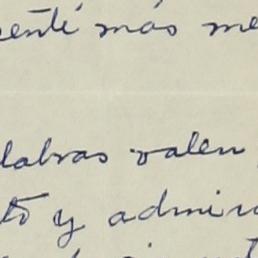 senté más me
labras valen
to y admira